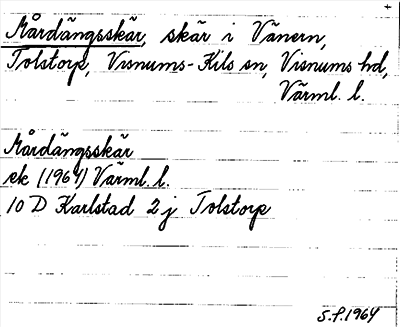 Mårdängsskär, skär i Vänern,
Tolstorp, Visnums-Kils sn, Visnums hd,
Värml. l.
Mårdängsskär
ek (1964) Värml. l.
10 D Karlstad 2 j Tolstorp
S.P. 1964